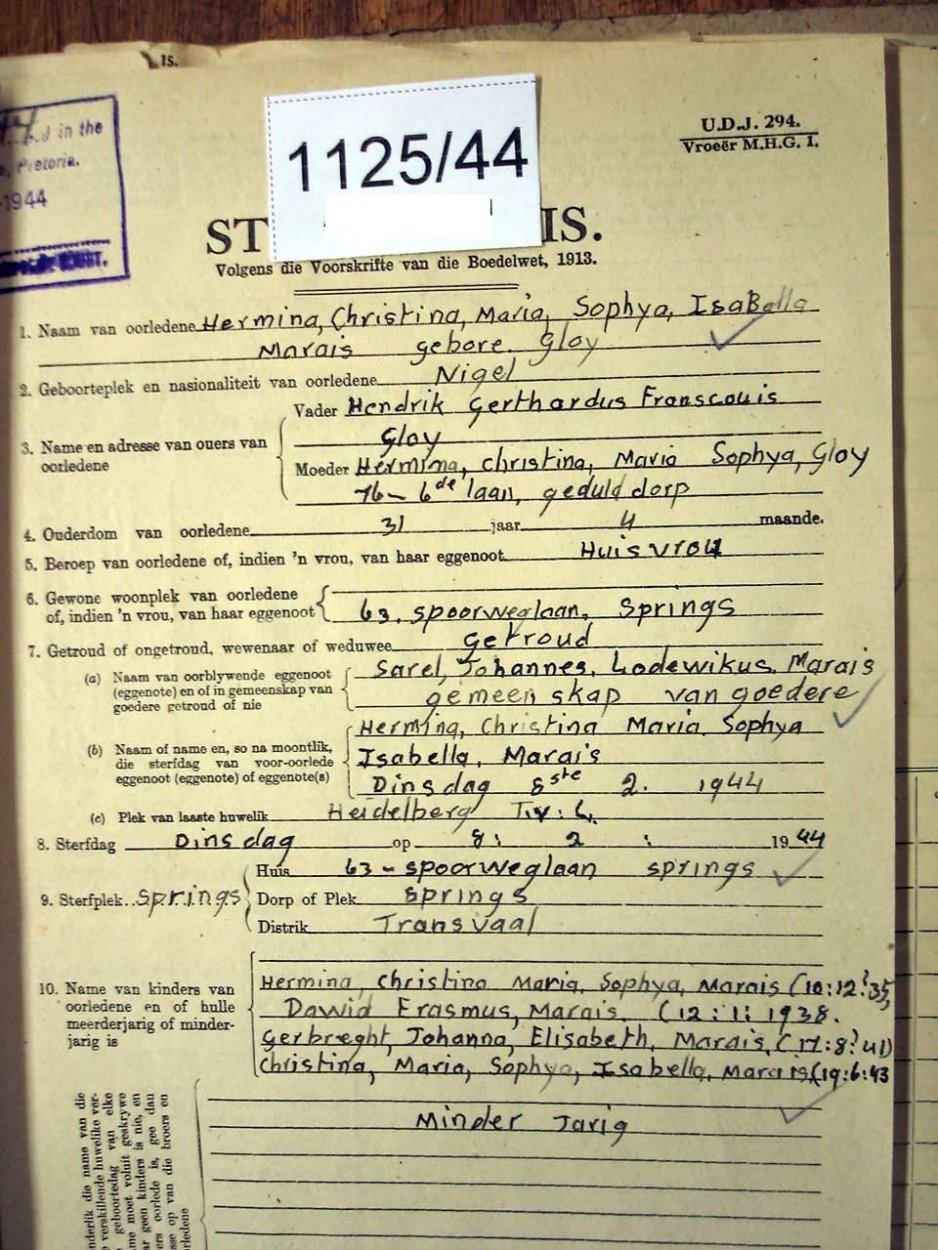 1s.
in the
Pretoria.
1944
1125/44
U.D.J. 294.
Vroeër M.H.G. 1.
ST IS.
Volgens die Voorskrifte van die Boedelwet, 1913.
1. Naam van oorledene Hermina, Christina, Maria, Sophya, IsaBella
Marais gebore Gloy
2. Geboorteplek en nasionaliteit van oorledene Nigel
3. Name en adresse van ouers van oorledene
Vader Hendrik Gerthardus Franscouis
Gloy
Moeder Hermina, Christina, Maria Sophya, Gloy
76 - 6de laan, geduld dorp
4. Ouderdom van oorledene 31 jaar 4 maande.
5. Beroep van oorledene of, indien 'n vrou, van haar eggenoot Huisvrou
6. Gewone woonplek van oorledene
of, indien 'n vrou, van haar eggenoot 63, spoorweglaan, Springs
7. Getroud of ongetroud, wewenaar of weduwee getroud
(a) Naam van oorblywende eggenoot
(eggenote) en of in gemeenskap van
goedere getroud of nie
Sarel, Johannes, Lodewikus, Marais
gemeenskap van goedere
(b) Naam of name en, so na moontlik,
die sterfdag van voor-oorlede
eggenoot (eggenote) of eggenote(s)
Hermina, Christina Maria Sophya
Isabella, Marais
Dinsdag 8ste 2. 1944
(c) Plek van laaste huwelik Heidelberg Tv:L.
8. Sterfdag Dinsdag op 8: 2 : 1944
9. Sterfplek Springs
Huis 63 - spoorweglaan springs
Dorp of Plek Springs
Distrik Transvaal
10. Name van kinders van
oorledene en of hulle
meerderjarig of minder-
jarig is
Hermina, Christina Maria, Sophya, Marais (10:12:35,
Dawid Erasmus, Marais. (12:1:1938.
Gerbreght, Johanna, Elisabeth, Marais, (17:8:41)
Christina, Maria, Sophya, Isabella, Marais, (19:6:43
Minder Jarig
die name van die
verskillende huwelike ver-
geboortedag van elke
me moet voluit geskrywe
ar geen kinders is nie, en
ers oorlede is, gee dan
se op van die broers en